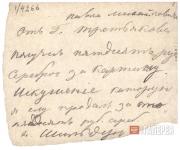 1/4266
Павла Михайловича
отъ Д. Третьякова
пятдесят руб
серебро за картину
Искушение которую
я ему продал за сто
пятдесят руб. сереб
Шильдер